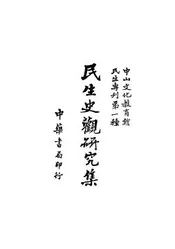 中山文化教育館
民生專刊第一種
民生史觀研究集
中華書局印行